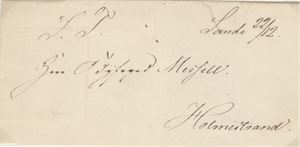 S. T. Sande 22/12.
Herr Messell.
Holmestrand.